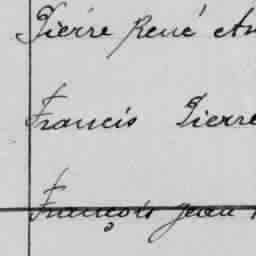 Pierre René
Francis Pierre
François Jean